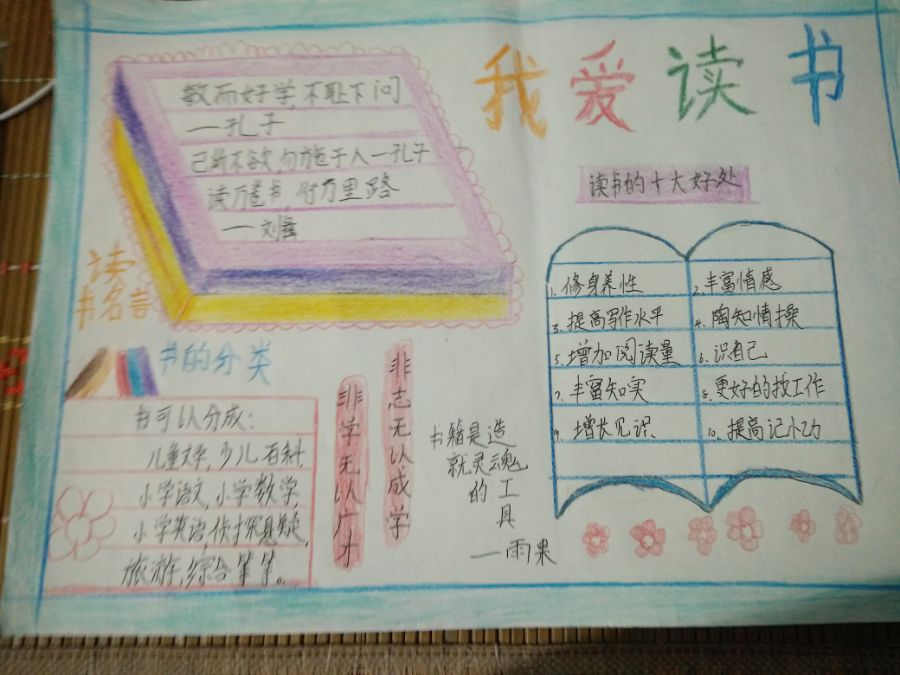 我爱读书
教而好学 不耻下问
—孔子
己所不欲,勿施于人—孔子
读万卷书,行万里路
—刘彝
读
书名言
读书的十大好处
1.修身养性
2.丰富情感
3.提高写作水平
4.陶知情操
5.增加阅读量
6.识自己
7.丰富知实
8.更好的找工作
9.增长见识
10.提高记小乙力
书的分类
书可以分成:
儿童文学,少儿百科,
小学语文,小学数学,
小学英语,侦探悬疑,
旅游,综合等等。
非学无以广才
非志无以成学
书籍是造
就灵魂
的工
具
—雨果